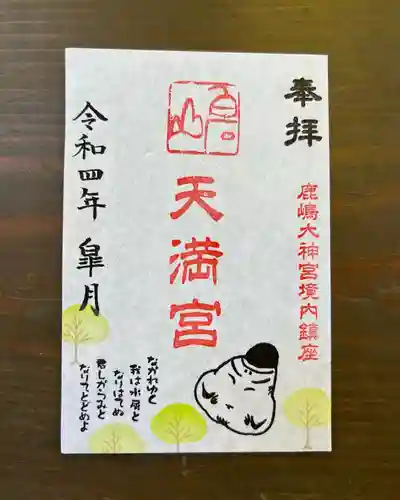 奉拝
鹿嶋大神宮境内鎮座
天満宮
令和四年 皐月
ながれゆく
我は水屑と
なりはてぬ
君しがらみと
なりてとどめよ